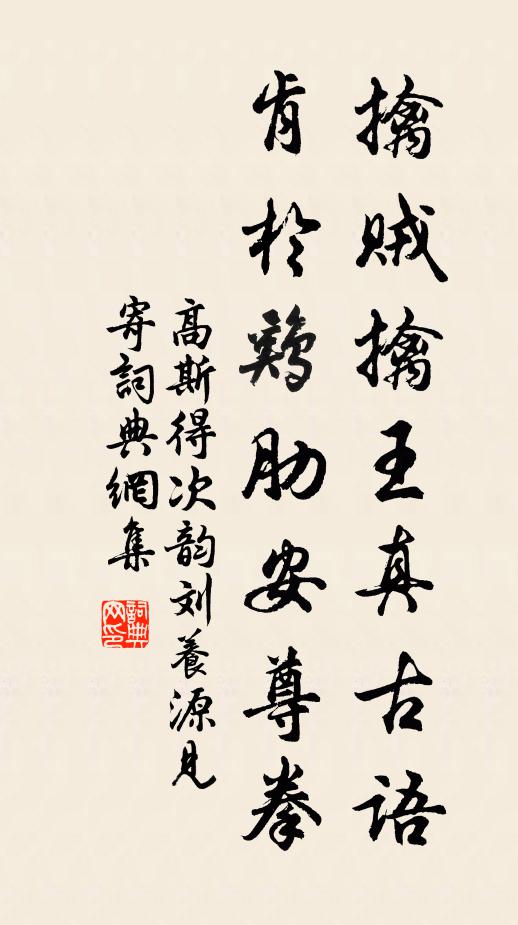 擒賊擒王真古語
肯於鷄肋安尊拳
高斯得次韵刘養源見
寄詞典網集
詞典网印